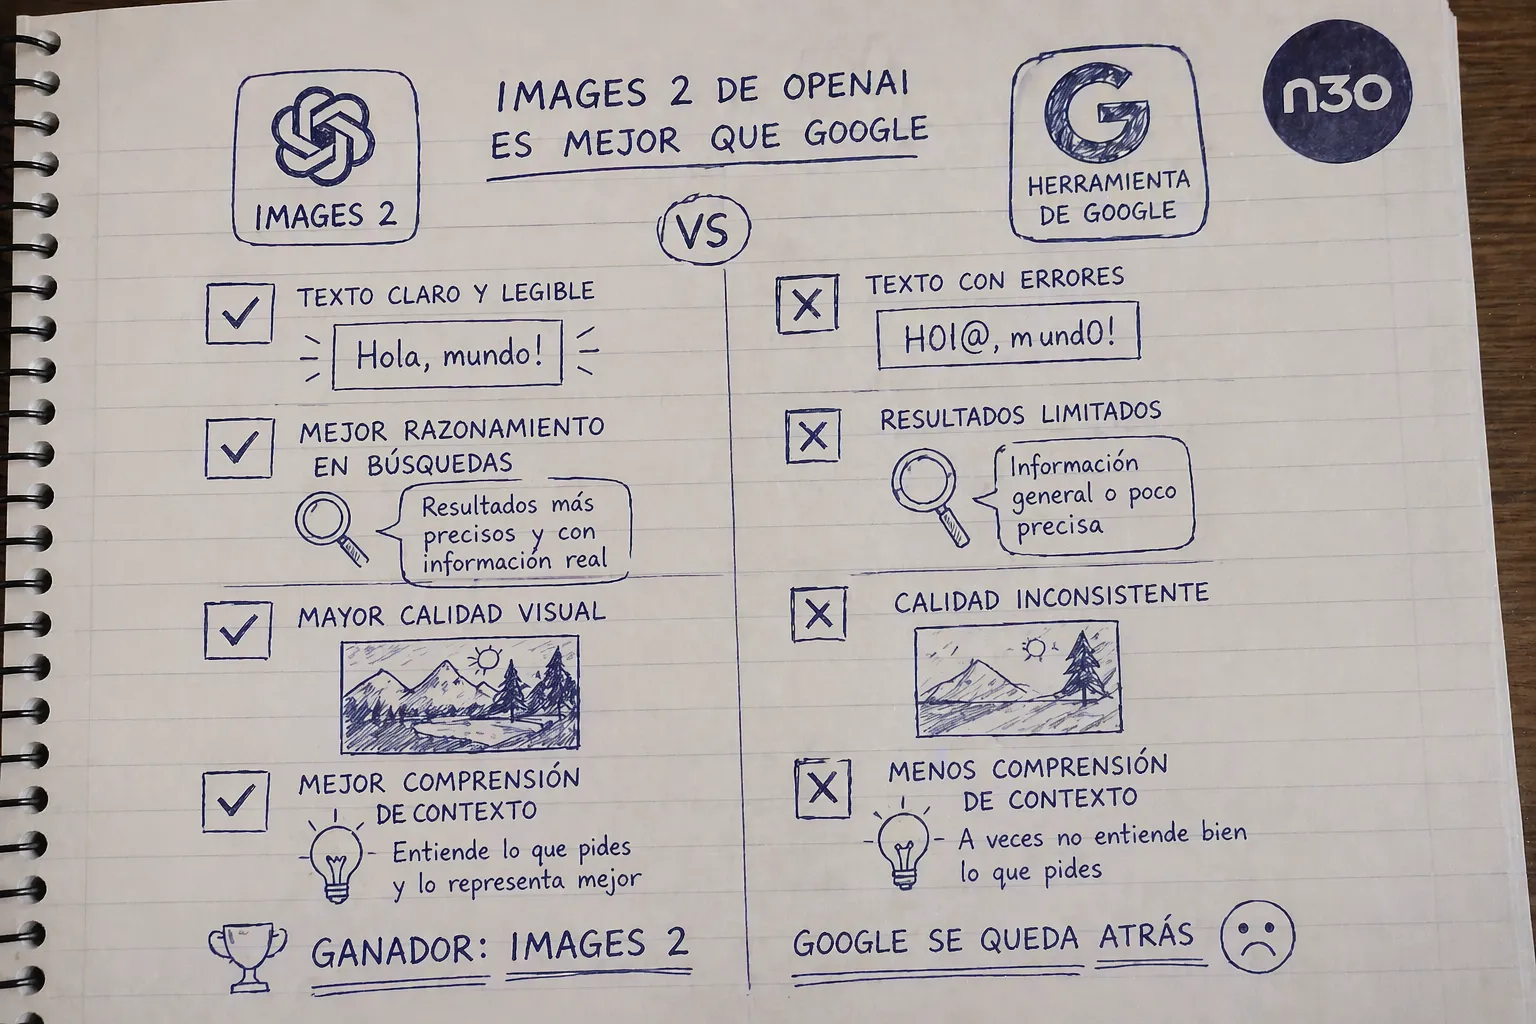 IMAGES 2 DE OPENAI
ES MEJOR QUE GOOGLE
n30
IMAGES 2
VS
HERRAMIENTA
DE GOOGLE
TEXTO CLARO Y LEGIBLE
Hola, mundo!
MEJOR RAZONAMIENTO
EN BÚSQUEDAS
Resultados más
precisos y con
información real
MAYOR CALIDAD VISUAL
MEJOR COMPRENSIÓN
DE CONTEXTO
Entiende lo que pides
y lo representa mejor
GANADOR: IMAGES 2
TEXTO CON ERRORES
HOl@, mundO!
RESULTADOS LIMITADOS
Información
general o poco
precisa
CALIDAD INCONSISTENTE
MENOS COMPRENSIÓN
DE CONTEXTO
A veces no entiende bien
lo que pides
GOOGLE SE QUEDA ATRÁS